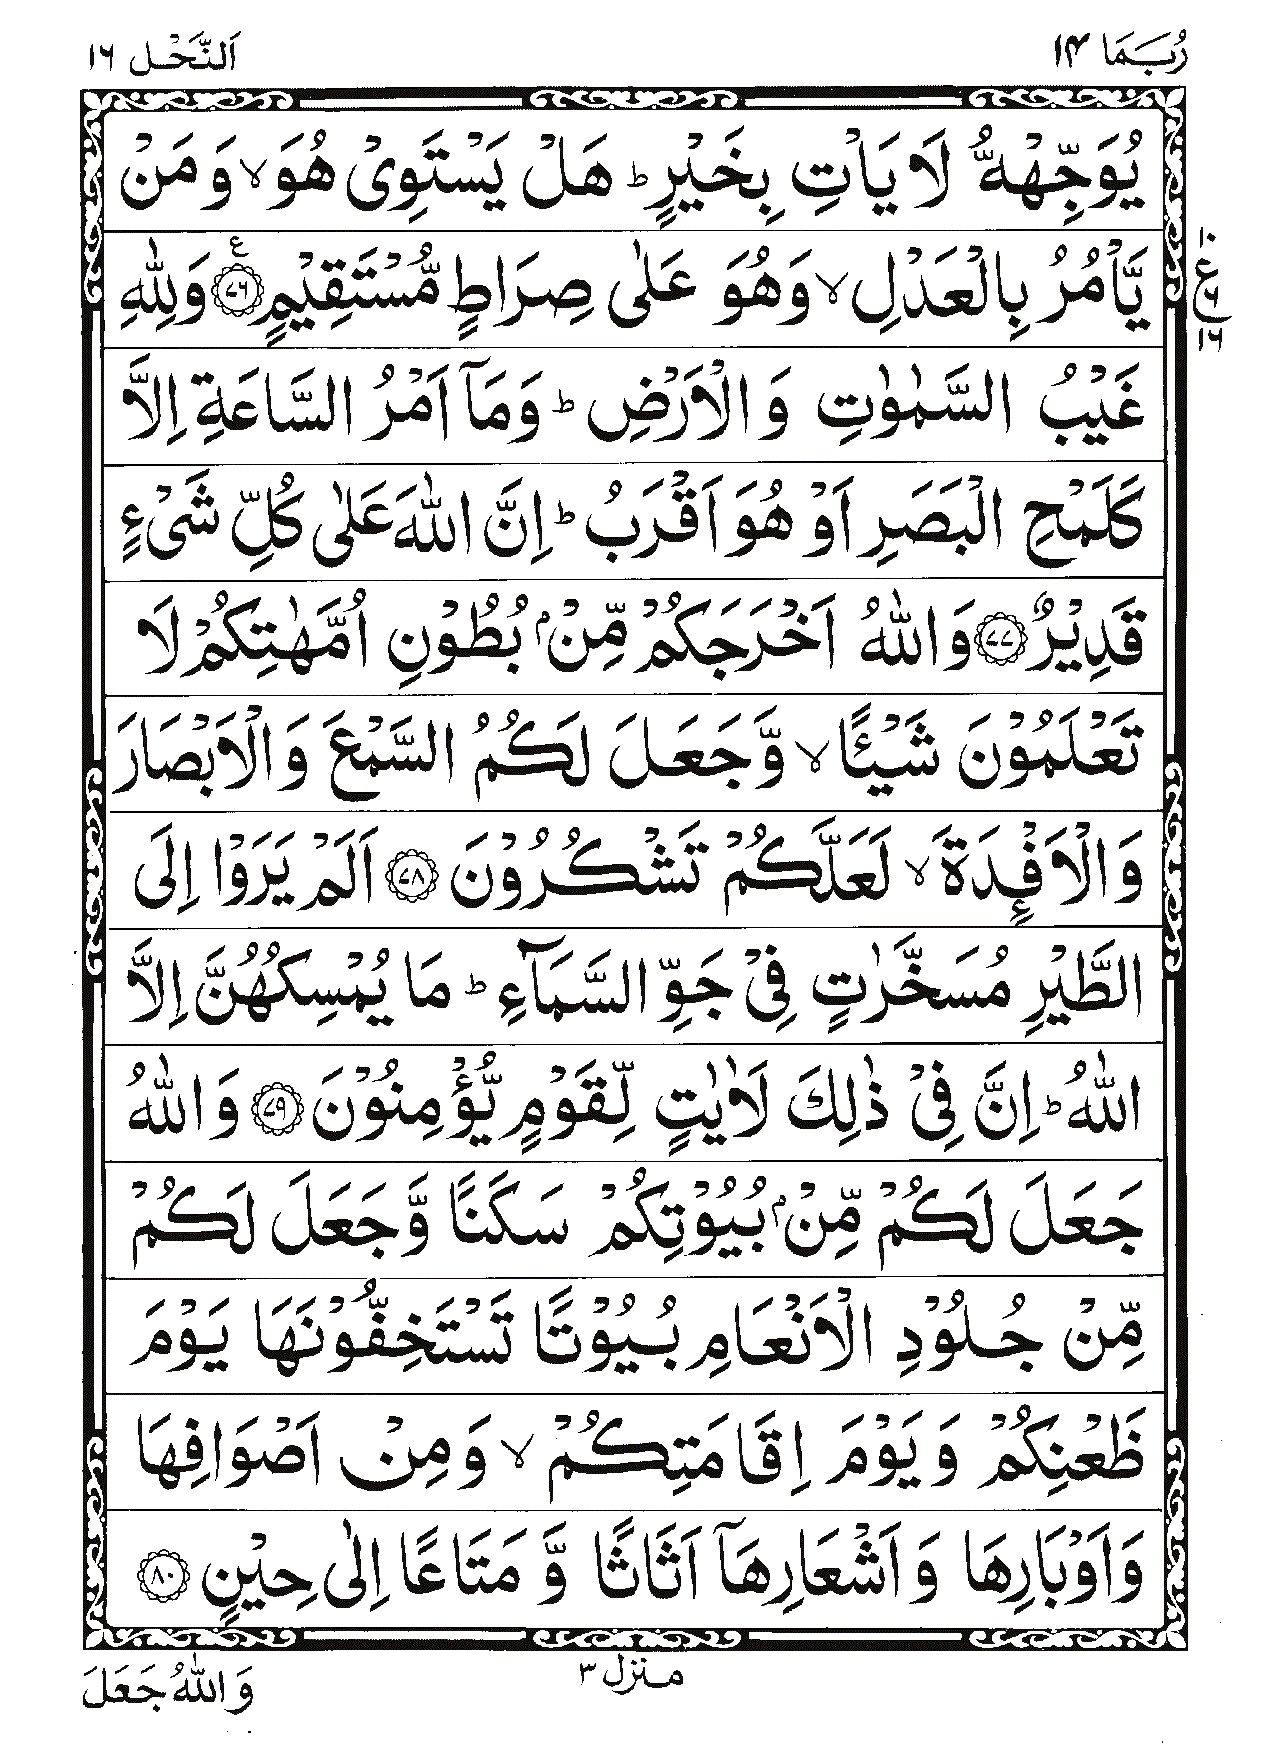 رُبَمَا ١٤
اَلنَّحْل ١٦
يُوَجِّهْهُّ لَا يَاْتِ بِخَيْرٍ ؕ هَلْ يَسْتَوِىْ هُوَ ۙ وَ مَنْ
يَّاْمُرُ بِالْعَدْلِ ۙ وَهُوَ عَلٰى صِرَاطٍ مُّسْتَقِيْمٍ ﴿٧٦﴾ ع وَلِلّٰهِ
١٠ ع ٦ ١٦
غَيْبُ السَّمٰوٰتِ وَ الْاَرْضِ ؕ وَمَآ اَمْرُ السَّاعَةِ اِلَّا
كَلَمْحِ الْبَصَرِ اَوْ هُوَ اَقْرَبُ ؕ اِنَّ اللّٰهَ عَلٰى كُلِّ شَىْءٍ
قَدِيْرٌ ﴿٧٧﴾ وَ اللّٰهُ اَخْرَجَكُمْ مِّنْۢ بُطُوْنِ اُمَّهٰتِكُمْ لَا
تَعْلَمُوْنَ شَيْـًٔا ۙ وَّجَعَلَ لَكُمُ السَّمْعَ وَ الْاَبْصَارَ
وَ الْاَفْـِٕدَةَ ۙ لَعَلَّكُمْ تَشْكُرُوْنَ ﴿٧٨﴾ اَلَمْ يَرَوْا اِلَى
الطَّيْرِ مُسَخَّرٰتٍ فِىْ جَوِّ السَّمَآءِ ؕ مَا يُمْسِكُهُنَّ اِلَّا
اللّٰهُ ؕ اِنَّ فِىْ ذٰلِكَ لَاٰيٰتٍ لِّقَوْمٍ يُّؤْمِنُوْنَ ﴿٧٩﴾ وَ اللّٰهُ
جَعَلَ لَكُمْ مِّنْۢ بُيُوْتِكُمْ سَكَنًا وَّجَعَلَ لَكُمْ
مِّنْ جُلُوْدِ الْاَنْعَامِ بُيُوْتًا تَسْتَخِفُّوْنَهَا يَوْمَ
ظَعْنِكُمْ وَ يَوْمَ اِقَامَتِكُمْ ۙ وَ مِنْ اَصْوَافِهَا
وَ اَوْبَارِهَا وَ اَشْعَارِهَآ اَثَاثًا وَّ مَتَاعًا اِلٰى حِيْنٍ ﴿٨٠﴾
منزل ٣
وَ اللّٰهُ جَعَلَ